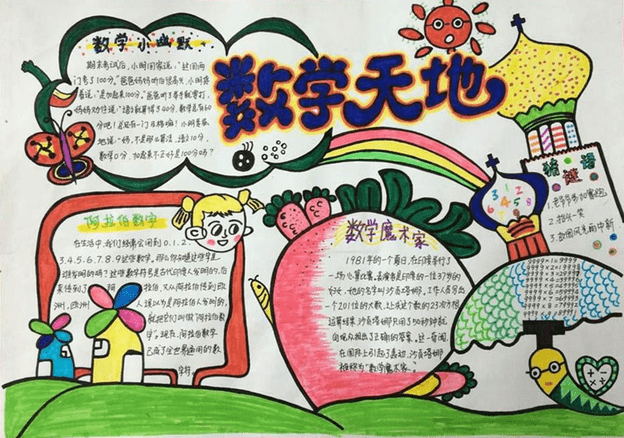 数学天地
数学小幽默
期末考试后,小明回家说:“这回两
门考了100分。”爸爸妈妈听后很高兴,小明接
着说:“是加起来100分。”爸爸听了举手就要打,
妈妈劝住说:“语文就算得了40分,数学总有60
分吧!总还有一门及格嘛!小明委屈
地说:“妈,不是那么算法,语文10分,
数学0分,加起来不正好是100分吗?
阿拉伯数字
在生活中,我们经常会用到0.1.2.
3.4.5.6.7.8.9这些数字,那么你知道这些字是
谁发明的吗?这些数字符号是古代印度人发明的,后
来传到了阿拉伯,又从阿拉伯传到欧
洲,欧洲人误以为是阿拉伯人发明的,
就把它们叫做“阿拉伯数
字”。现在,阿拉伯数字
已成了全世界通用的数
字符
数学魔术家
1981年的一个夏日,在印度举行了
一场心算比赛,表演者是印度的一位37岁的
妇女,他的名字叫沙贡塔娜,工作人员写出
一个201位的大数,让求这个数的23次方根
运算结果,沙贡塔娜只用了50秒钟就
向观众报出了正确的答案。这一奇闻,
在国际上引起了轰动,沙贡塔娜
被称为“数学魔术家”。
猜谜语
3 1 2
4 5 8